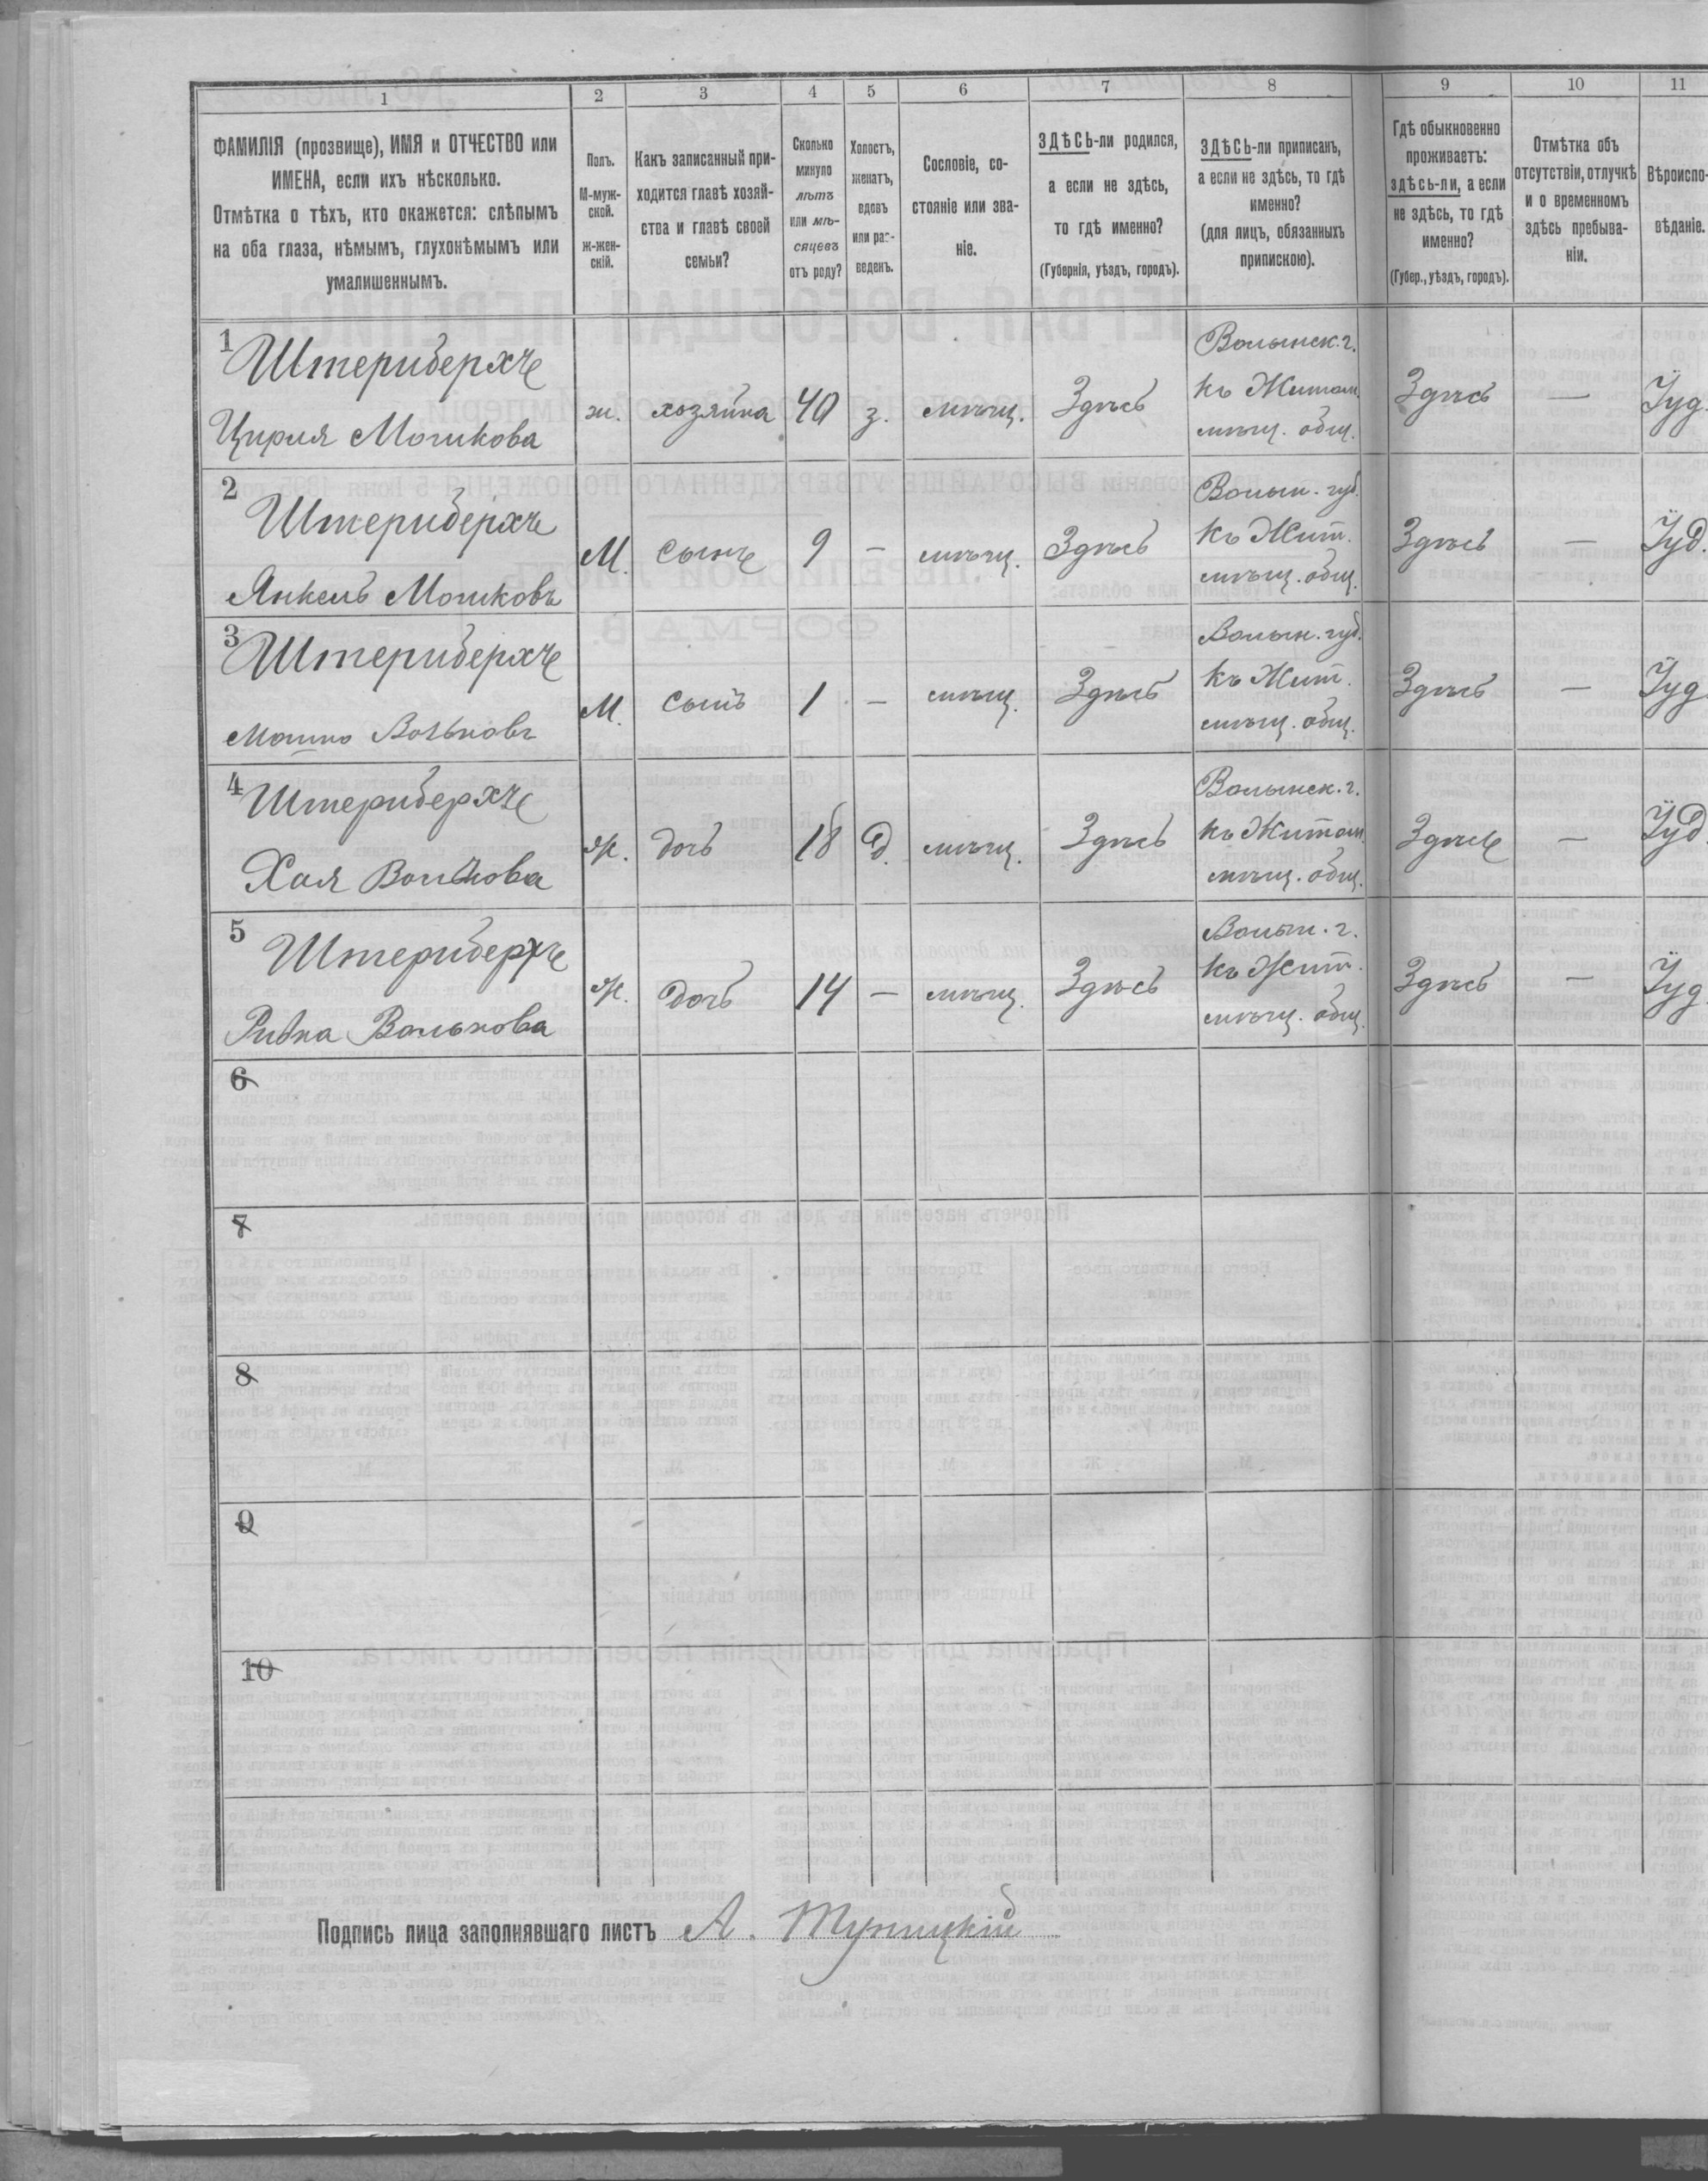 1 2 3 4 5 6 7 8 9 10 11
ФАМИЛІЯ (прозвище), ИМЯ и ОТЧЕСТВО или
ИМЕНА, если ихъ нѣсколько.
Отмѣтка о тѣхъ, кто окажется: слѣпымъ
на оба глаза, нѣмымъ, глухонѣмымъ или
умалишеннымъ.
Полъ.
М-муж-
ской.
ж-жен-
скій.
Какъ записанный при-
ходится главѣ хозяй-
ства и главѣ своей
семьи?
Сколько
минуло
лѣтъ
или мѣ-
сяцевъ
отъ роду?
Холостъ,
женатъ,
вдовъ
или раз-
веденъ.
Сословіе, со-
стояніе или зва-
ніе.
ЗДѢСЬ-ли родился,
а если не здѣсь,
то гдѣ именно?
(Губернія, уѣздъ, городъ).
ЗДѢСЬ-ли приписанъ,
а если не здѣсь, то гдѣ
именно?
(для лицъ, обязанныхъ
припискою).
Гдѣ обыкновенно
проживаетъ:
здѣсь-ли, а если
не здѣсь, то гдѣ
именно?
(Губер., уѣздъ, городъ).
Отмѣтка объ
отсутствіи, отлучкѣ
и о временномъ
здѣсь пребыва-
ніи.
Вѣроиспо-
вѣданіе.
1 Штерибергъ
Цирля Мошкова
ж. хозяйка 40 з. мѣщ. Здѣсь
Волынск. г.
къ Житом.
мѣщ. общ.
Здѣсь — Іуд.
2 Штерибергъ
Янкель Мошковъ
М. сынъ 9 — мѣщ. Здѣсь
Волын. губ.
къ Жит.
мѣщ. общ.
Здѣсь — Іуд.
3 Штерибергъ
Мошко Вольковъ
М. сынъ 1 — мѣщ. Здѣсь
Волын. губ.
къ Жит.
мѣщ. общ.
Здѣсь — Іуд
4 Штерибергъ
Хая Волькова
ж. дочь 18 д. мѣщ. Здѣсь
Волынск. г.
къ Житом.
мѣщ. общ.
Здѣсь — Іуд.
5 Штерибергъ
Ривка Волькова
ж. дочь 14 — мѣщ. Здѣсь
Волын. г.
къ Жит.
мѣщ. общ.
Здѣсь — Іуд
6
7
8
9
10
Подпись лица заполнявшаго листъ А. Туницкій